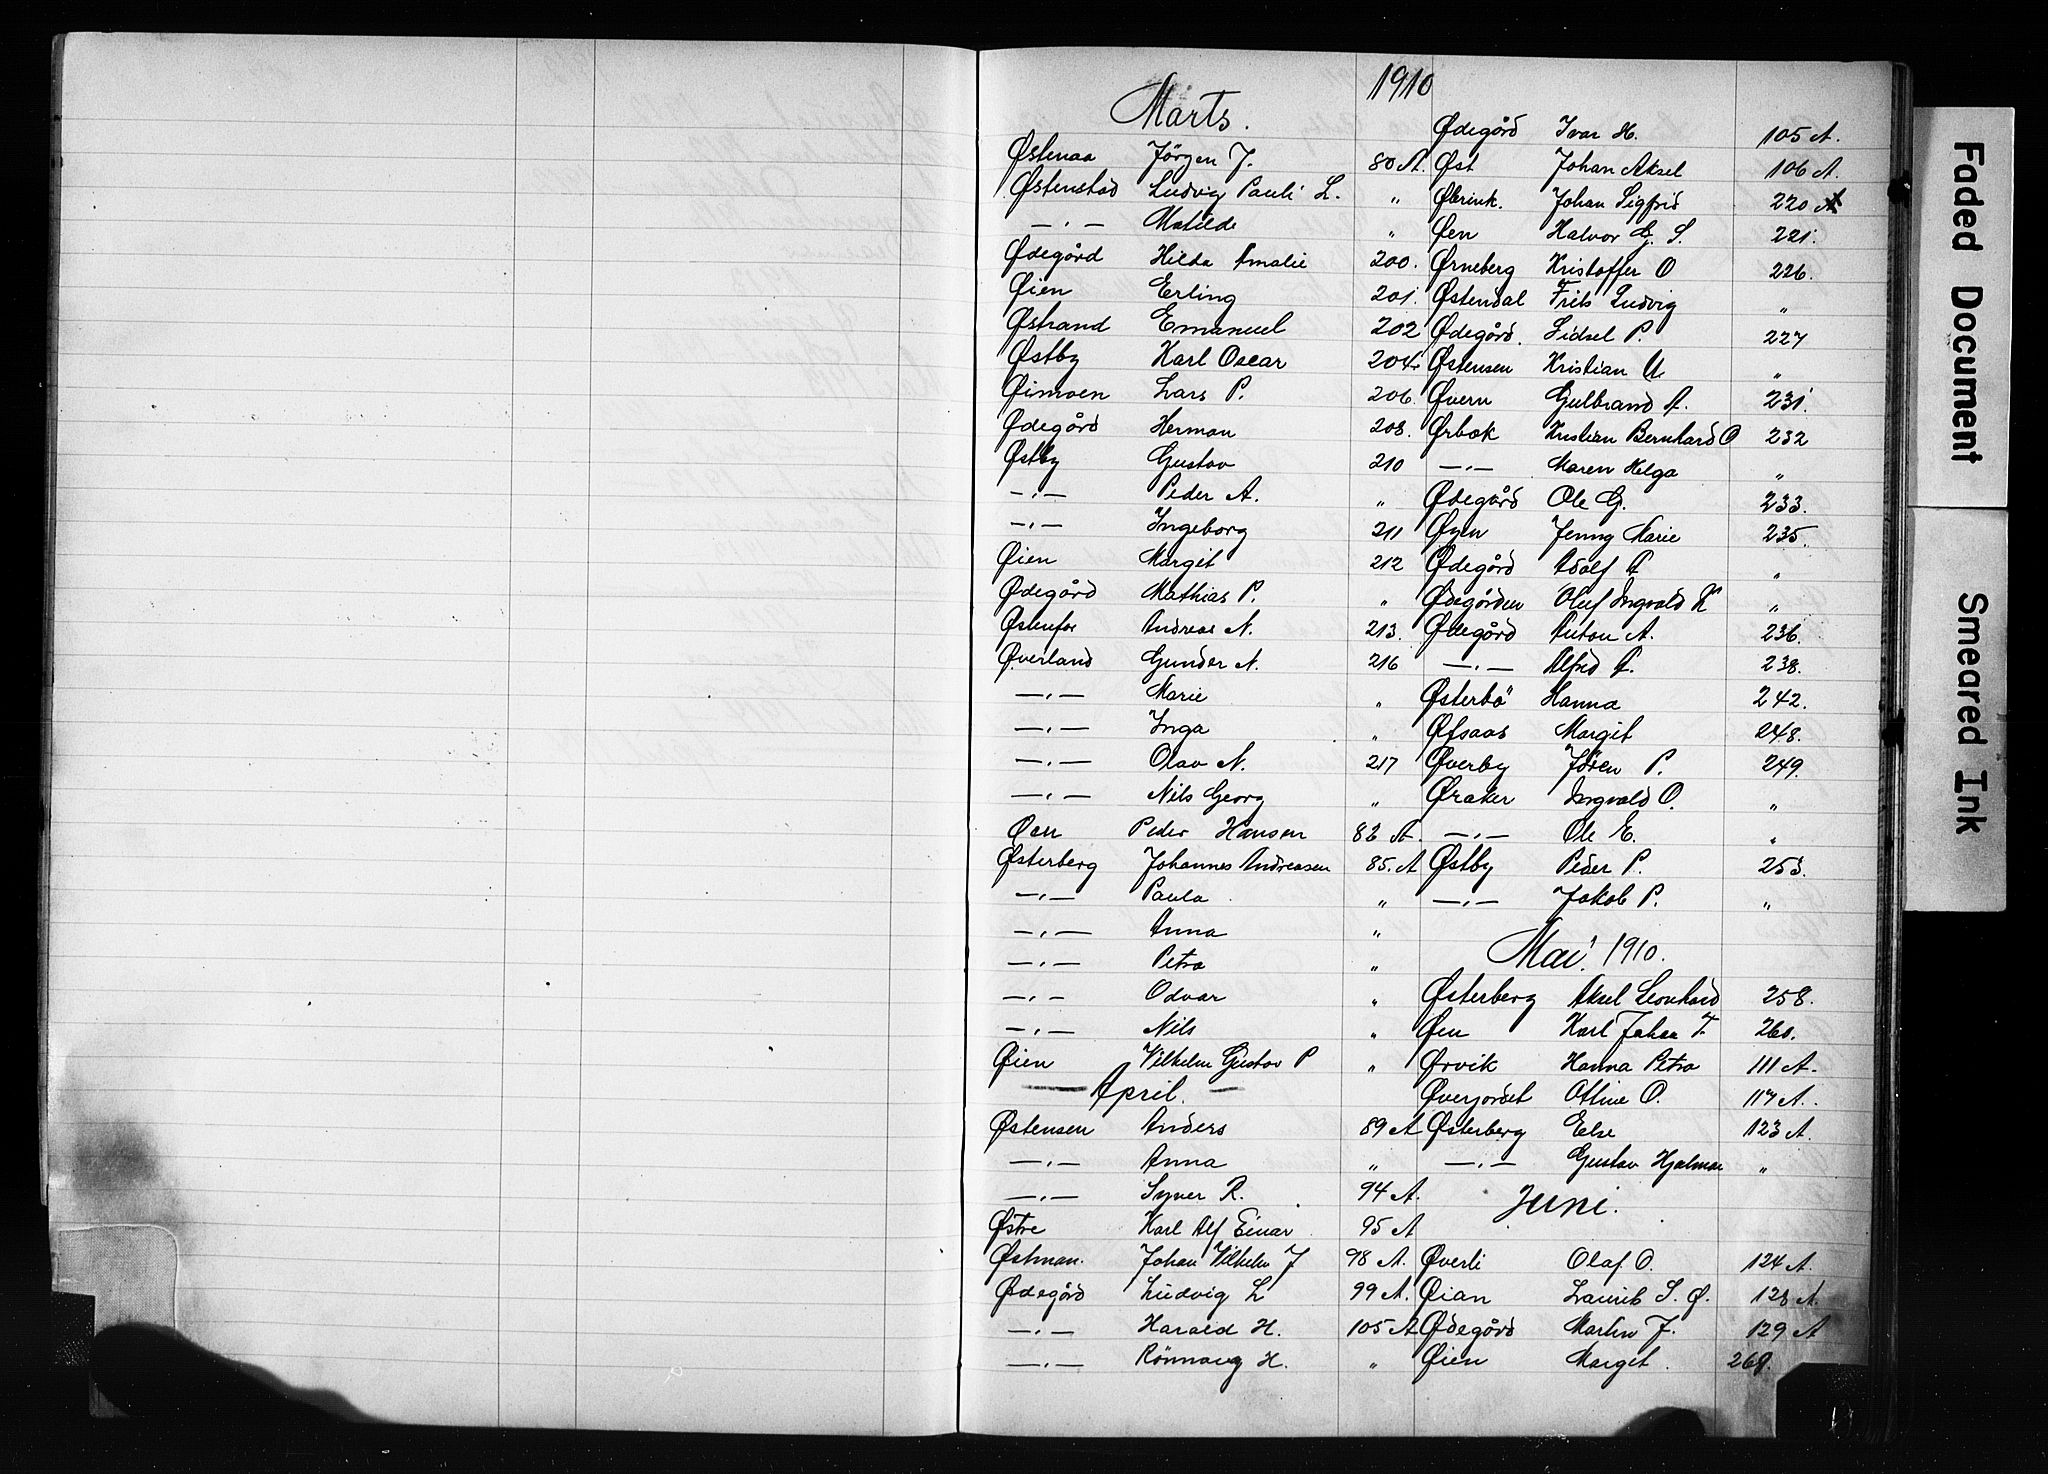 1910
Marts.
Østenaa Jörgen J. 80 A.
Østenstad Ludvig Pauli L. "
—"— Matilde "
Ødegård Hilda Amalie 200.
Øien Erling 201.
Østrand Emanuel 202
Østby Karl Oscar 204.
Øimoen Lars P. 206.
Ødegård Herman 208.
Østby Gustav 210
—"— Peder A. "
—"— Ingeborg 211
Øien Margit 212
Ødegård Mathias P. "
Østenfor Andreas N. 213.
Øverland Gunder N. 216
—"— Marie "
—"— Inga "
—"— Olav N. 217
—"— Nils Georg "
Øen Peder Hansen 82 A.
Østerberg Johannes Andreasen 85. A
—"— Paula "
—"— Anna "
—"— Petra "
—"— Odvar "
—"— Nils "
Øien Vilhelm Gustav P "
— April. —
Østensen Anders 89 A
—"— Anna "
—"— Syver R. 94 A.
Østre Karl Alf Einar 95 A
Østman. Johan Vilhelm J 98 A.
Ødegård Ludvig L 99 A.
—"— Harald H. 105 A
—"— Rönnaug H. "
Ødegård Ivar H. 105 A.
Øst Johan Aksel 106 A.
Øbrink. Johan Sigfrid 220
Øen Halvor G. S. 221.
Ørneberg Kristoffer O 226.
Østendal Frits Ludvig "
Ødegård. Sidsel P. 227
Østensen Kristian U. "
Øvern Gulbrand A. 231.
Ørbæk Kristian Bernhard O 232
—"— Maren Helga "
Ødegård Ole G. 233.
Øyen Jenny Marie 235.
Ødegård Adolf A "
Ødegården Oluf Ingvald K "
Ødegård Anton A. 236.
—"— Alfred A. 238.
Østerbö Hanna 242.
Øfsaas Margit 248.
Øverby Jören P. 249.
Øraker Ingvald O. "
—"— Ole E. "
Østby Peder P. 253.
—"— Jakob P. "
Mai 1910.
Østerberg Aksel Leonhard 258.
Øen Karl Johan I. 260.
Ørvik Hanna Petra 111 A.
Øverjordet Ottine O. 117 A.
Østerberg Else 123 A.
—"— Gustav Hjalmar "
Juni.
Øverli Olaf O. 124 A.
Øian Laurits S. Ø. 128 A.
Ødegård Martin J. 129 A
Øien Margit. 269.
Faded Document
Smeared Ink